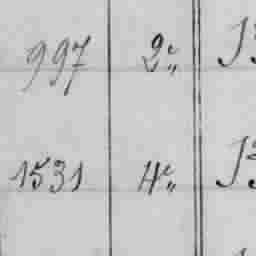 997 2e„
1531 4e„